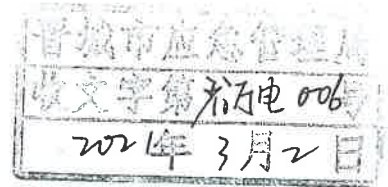 晋城市应急管理局
收文字第省内电006号
2021年3月2日